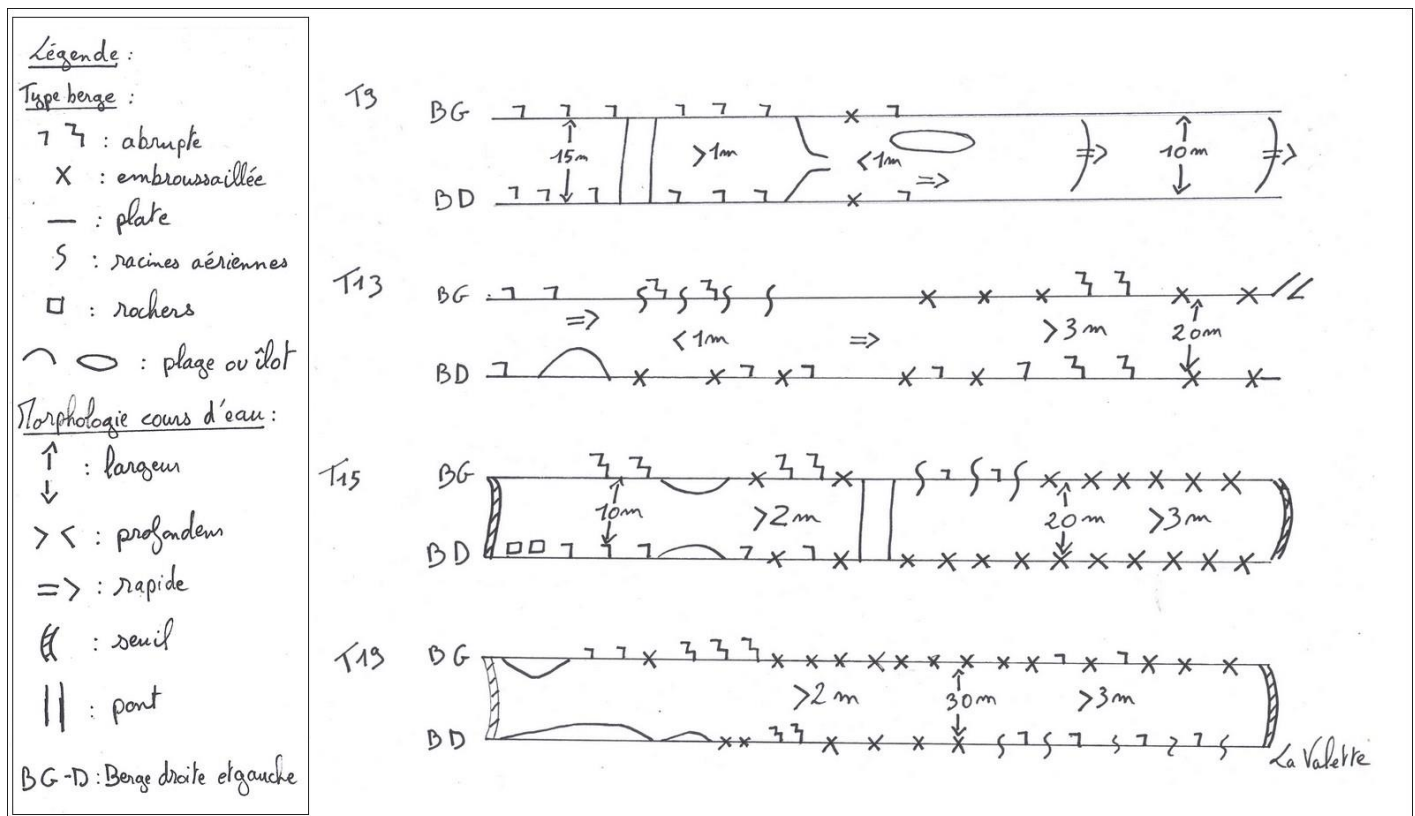 Légende :
Type berge :
: abrupte
X : embroussaillée
— : plate
: racines aériennes
: rochers
: plage ou îlot
Morphologie cours d'eau :
: largeur
> < : profondeur
=> : rapide
: seuil
|| : pont
BG-D : Berge droite et gauche
T9
BG
15m
>1m
<1m
10m
BD
T13
BG
<1m
>3m
20m
BD
T15
BG
10m
>2m
20m
>3m
BD
T19
BG
>2m
30m
>3m
BD
La Valette